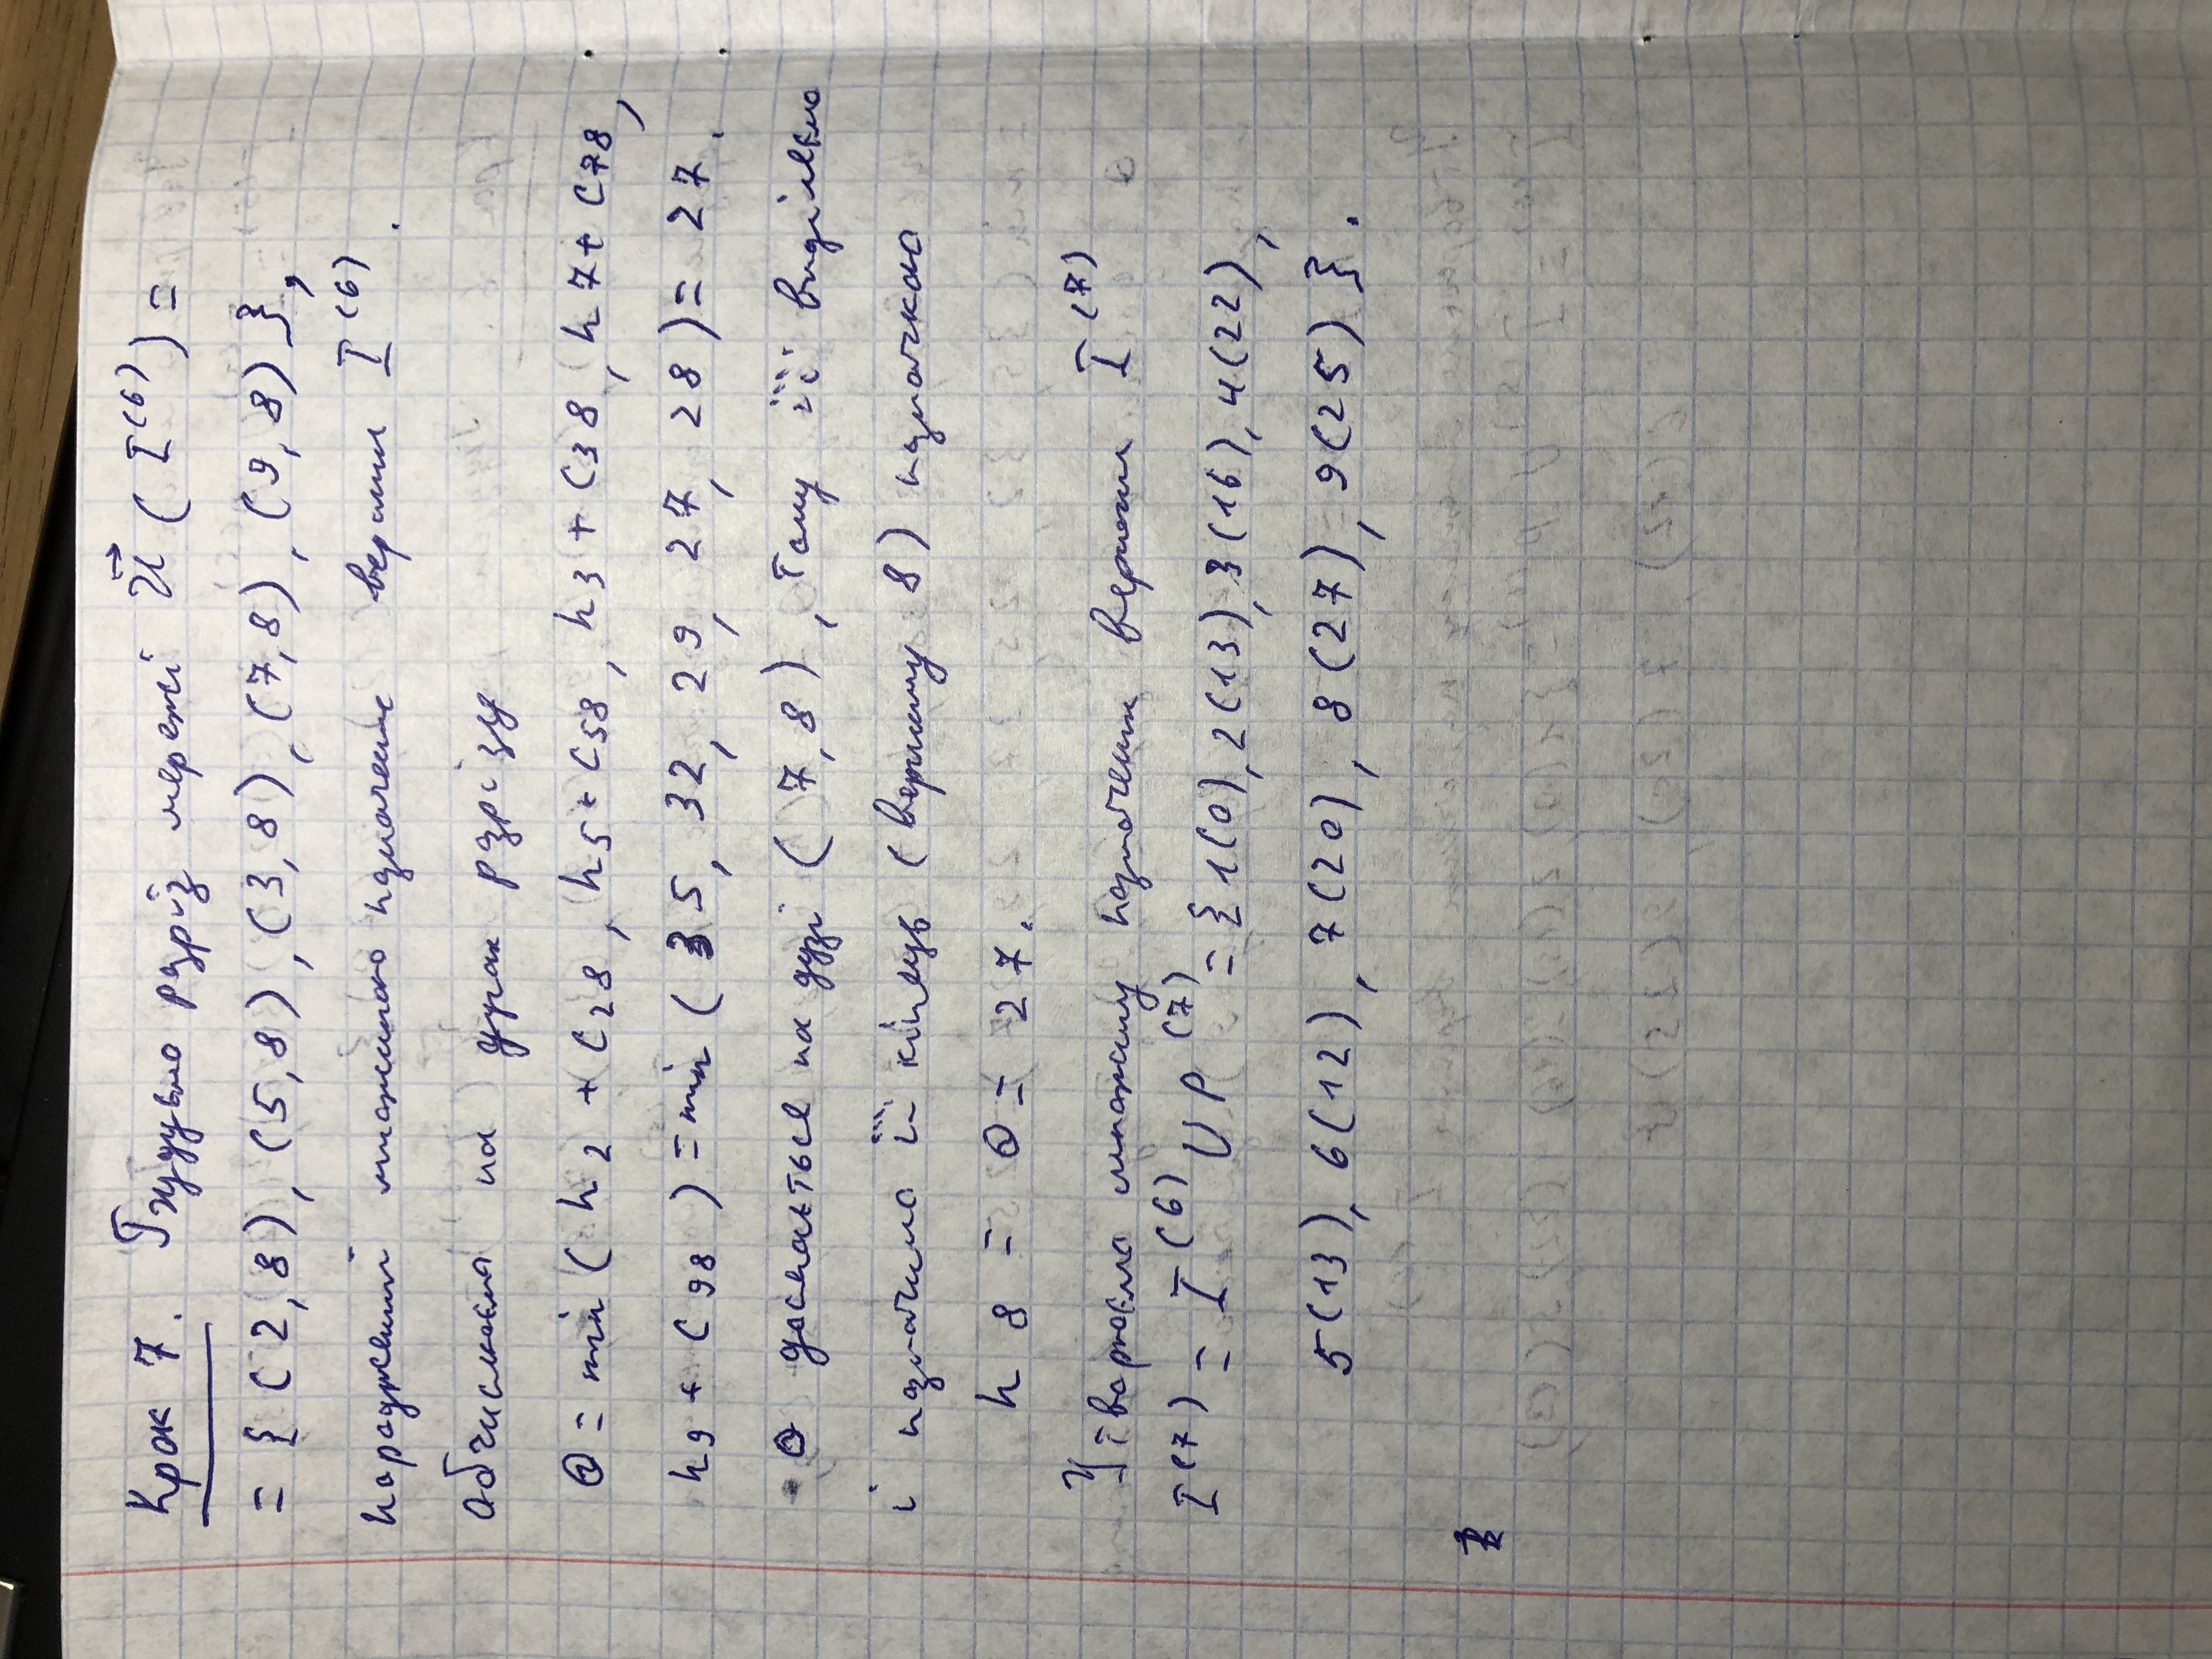 Крок 7. Будуємо розріз мережі U⃗ ( I⁽⁶⁾ ) =
= { (2,8), (5,8), (3,8), (7,8), (9,8) },
породжений множиною позначених вершин I⁽⁶⁾.
Обчислюємо на дугах розрізу
Θ = min ( h₂ + C₂₈, h₅ + C₅₈, h₃ + C₃₈, h₇ + C₇₈,
h₉ + C₉₈ ) = min ( 35, 32, 29, 27, 28 ) = 27.
Θ досягається на дузі (7,8), тому її виділяємо
і позначимо її кінець (вершину 8) позначкою
h₈ = Θ = 27.
Утворюємо множину позначених вершин I⁽⁷⁾
I⁽⁷⁾ = I⁽⁶⁾ ∪ P⁽⁷⁾ = { 1(0), 2(13), 3(16), 4(22),
5(13), 6(12), 7(20), 8(27), 9(25) }.